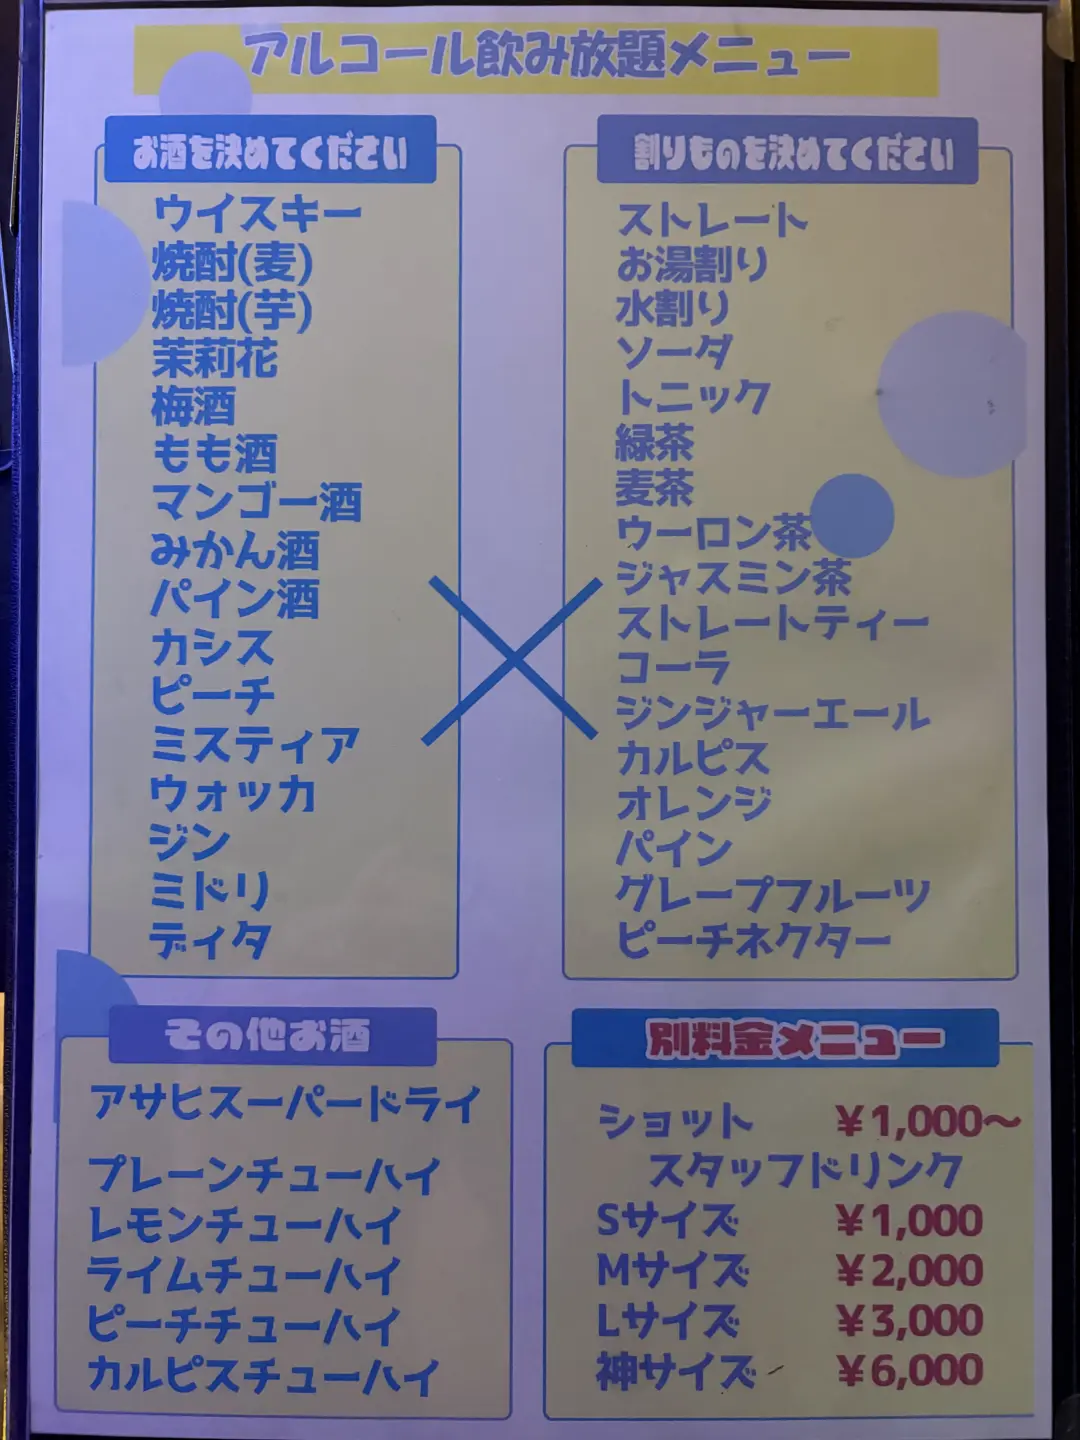 アルコール飲み放題メニュー
お酒を決めてください
ウイスキー
焼酎(麦)
焼酎(芋)
茉莉花
梅酒
もも酒
マンゴー酒
みかん酒
パイン酒
カシス
ピーチ
ミスティア
ウォッカ
ジン
ミドリ
ディタ
×
割りものを決めてください
ストレート
お湯割り
水割り
ソーダ
トニック
緑茶
麦茶
ウーロン茶
ジャスミン茶
ストレートティー
コーラ
ジンジャーエール
カルピス
オレンジ
パイン
グレープフルーツ
ピーチネクター
その他お酒
アサヒスーパードライ
プレーンチューハイ
レモンチューハイ
ライムチューハイ
ピーチチューハイ
カルピスチューハイ
別料金メニュー
ショット ¥1,000〜
スタッフドリンク
Sサイズ ¥1,000
Mサイズ ¥2,000
Lサイズ ¥3,000
神サイズ ¥6,000